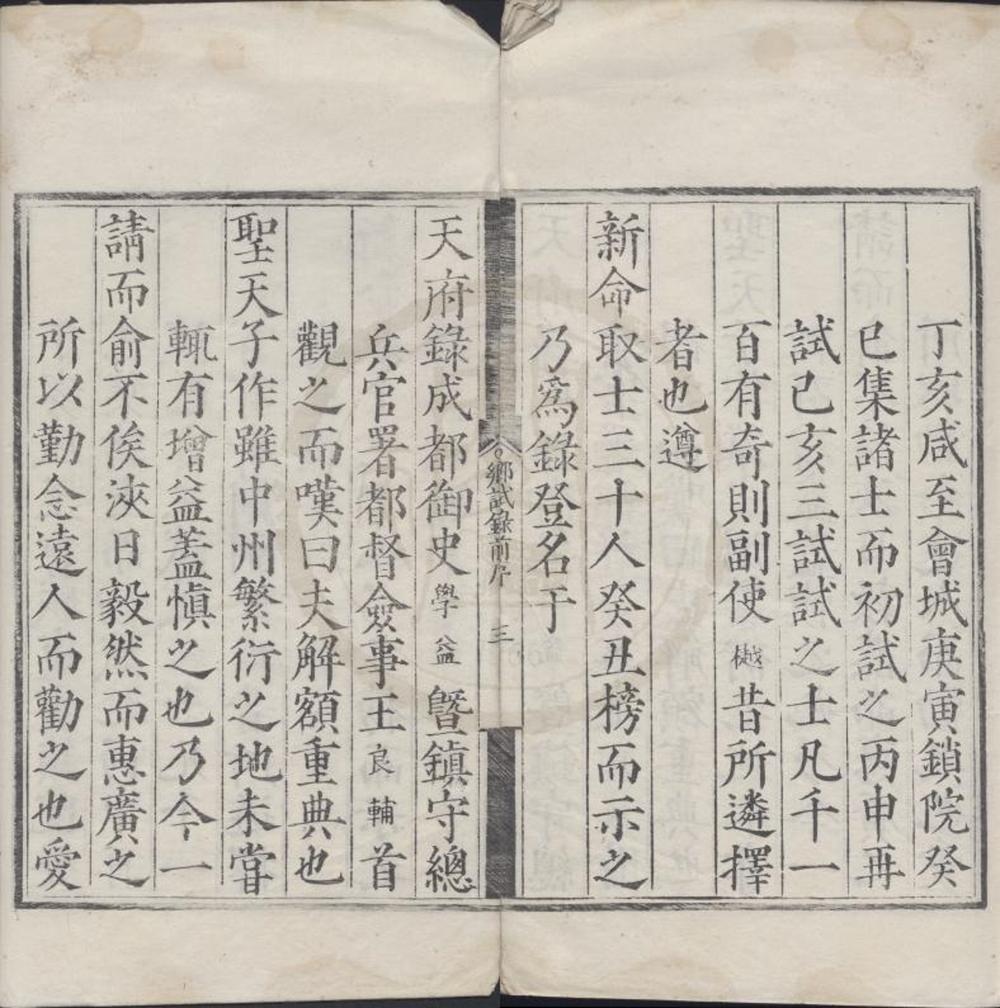 丁亥咸至會城庚寅鎖院癸
巳集諸士而初試之丙申再
試己亥三試試之士凡千一
百有奇則副使樾昔所遴擇
者也遵
新命取士三十人癸丑榜而示之
乃爲錄登名于
鄉試錄前序 三
天府錄成都御史學益暨鎮守總
兵官署都督僉事王良輔首
觀之而嘆曰夫解額重典也
聖天子作雖中州繁衍之地未甞
輒有增益蓋慎之也乃今一
請而俞不俟浹日毅然而惠廣之
所以勤念遠人而勸之也愛